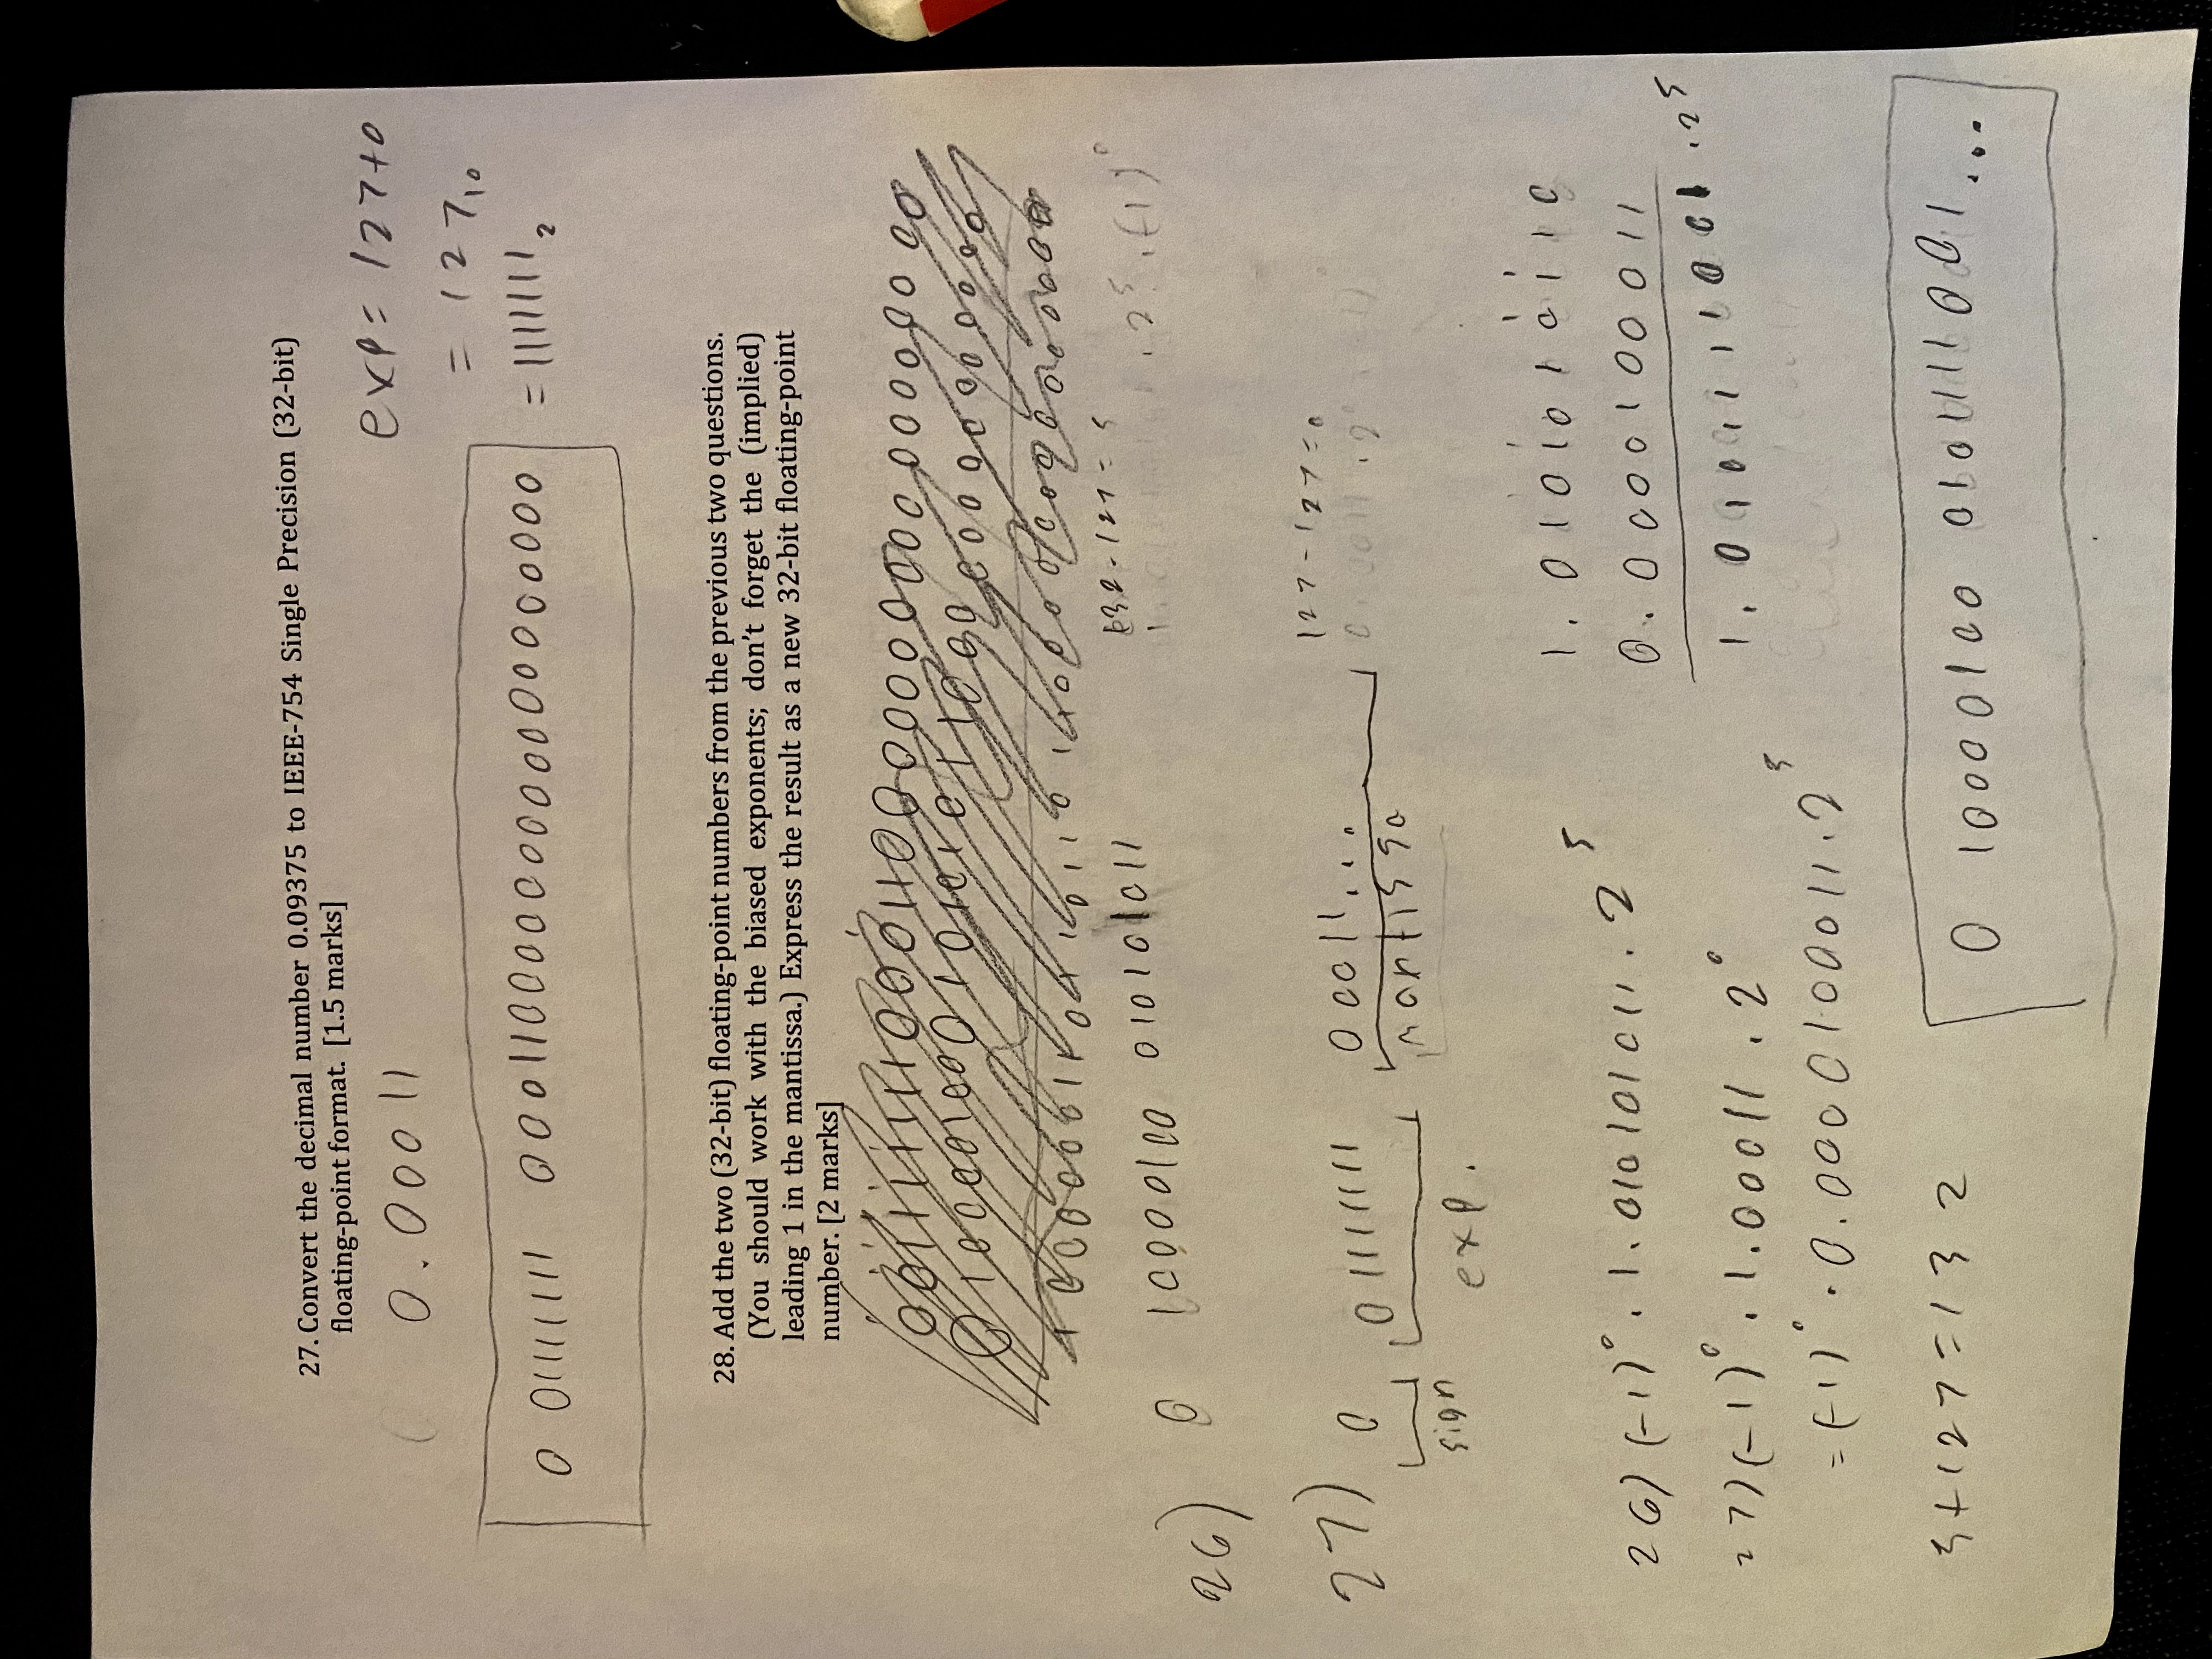 27. Convert the decimal number 0.09375 to IEEE-754 Single Precision (32-bit)
floating-point format. [1.5 marks]
0.00011
exp = 127+0
= 127₁₀
= 1111111₂
0 01111111 00011000000000000000000
28. Add the two (32-bit) floating-point numbers from the previous two questions.
(You should work with the biased exponents; don't forget the (implied)
leading 1 in the mantissa.) Express the result as a new 32-bit floating-point
number. [2 marks]
132-127=5
26) 0 10000100 010101011
. 2⁵ . (-1)⁰
127-127=0
27) 0 01111111 00011...
sign exp. mantissa
1.0101010110
0.0000100011
1.0101111001 .2⁵
26) (-1)⁰ . 1.010101011 . 2⁵
27) (-1)⁰ . 1.00011 . 2⁰
= (-1)⁰ . 0.0000100011 . 2⁵
5+127=132
0 10000100 0101111001...